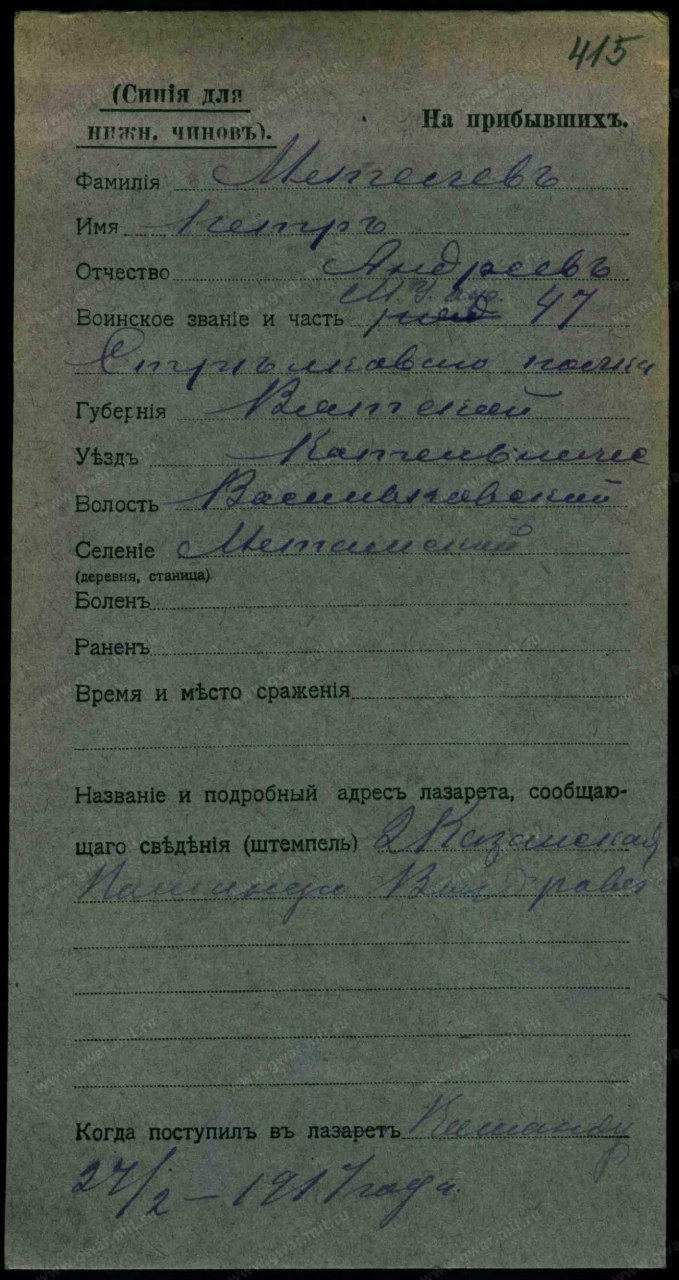 415
(Синія для
нижн. чиновъ).
На прибывшихъ.
Фамилія
Имя Петръ
Отчество Андреевъ
Воинское званіе и часть ряд 47
Стрѣлковаго полка
Губернія Вятской
Уѣздъ
Волость Васильковской
Селеніе
(деревня, станица)
Боленъ
Раненъ
Время и мѣсто сраженія
Названіе и подробный адресъ лазарета, сообщаю-
щаго свѣдѣнія (штемпель) 2 Казанская
Команда
Когда поступилъ въ лазаретъ Команду
27/2 – 1917 года.